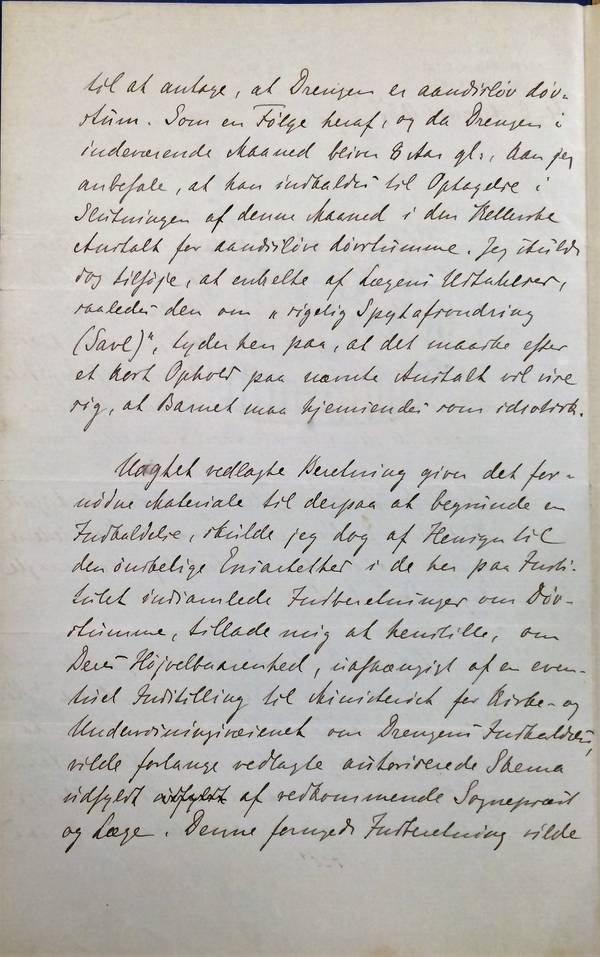 til at antage, at Drengen er aandsløv døv-
stum. Som en Følge heraf, og da Drengen i
indeværende Maaned bliver 8 Aar gl:, kan jeg
anbefale, at han indkaldes til Optagelse i
Slutningen af denne Maaned i den Kellerske
Anstalt for aandssløve døvstumme. Jeg skulde
dog tilføje, at enkelte af Lægens Udtalelser,
saaledes den om "rigelig Spytafsondring
(Savl)", tyder hen paa, at det maaske efter
et kort Ophold paa nævnte Anstalt vil vise
sig, at Barnet maa hjemsendes som idiotisk.
Uagtet vedlagte Beretning giver det for-
nødne Materiale til derpaa at begrunde en
Indkaldelse, skulde jeg dog af Hensyn til
den ønskelige Ensartethed i de her paa Insti-
tutet indsamlede Indberetninger om Døv-
stumme, tillade mig at henstille, om
Deres Højvelbaarenhed, uafhængigt af en even-
tuel Indstilling til Ministeriet for Kirke- og
Undervisningsvæsenet om Drengens Indkaldelse,
vilde forlange vedlagte autoriserede Skema
udfyldt udfyldt af vedkommende Sognepræst
og Læge. Denne fornyede Indberetning vilde